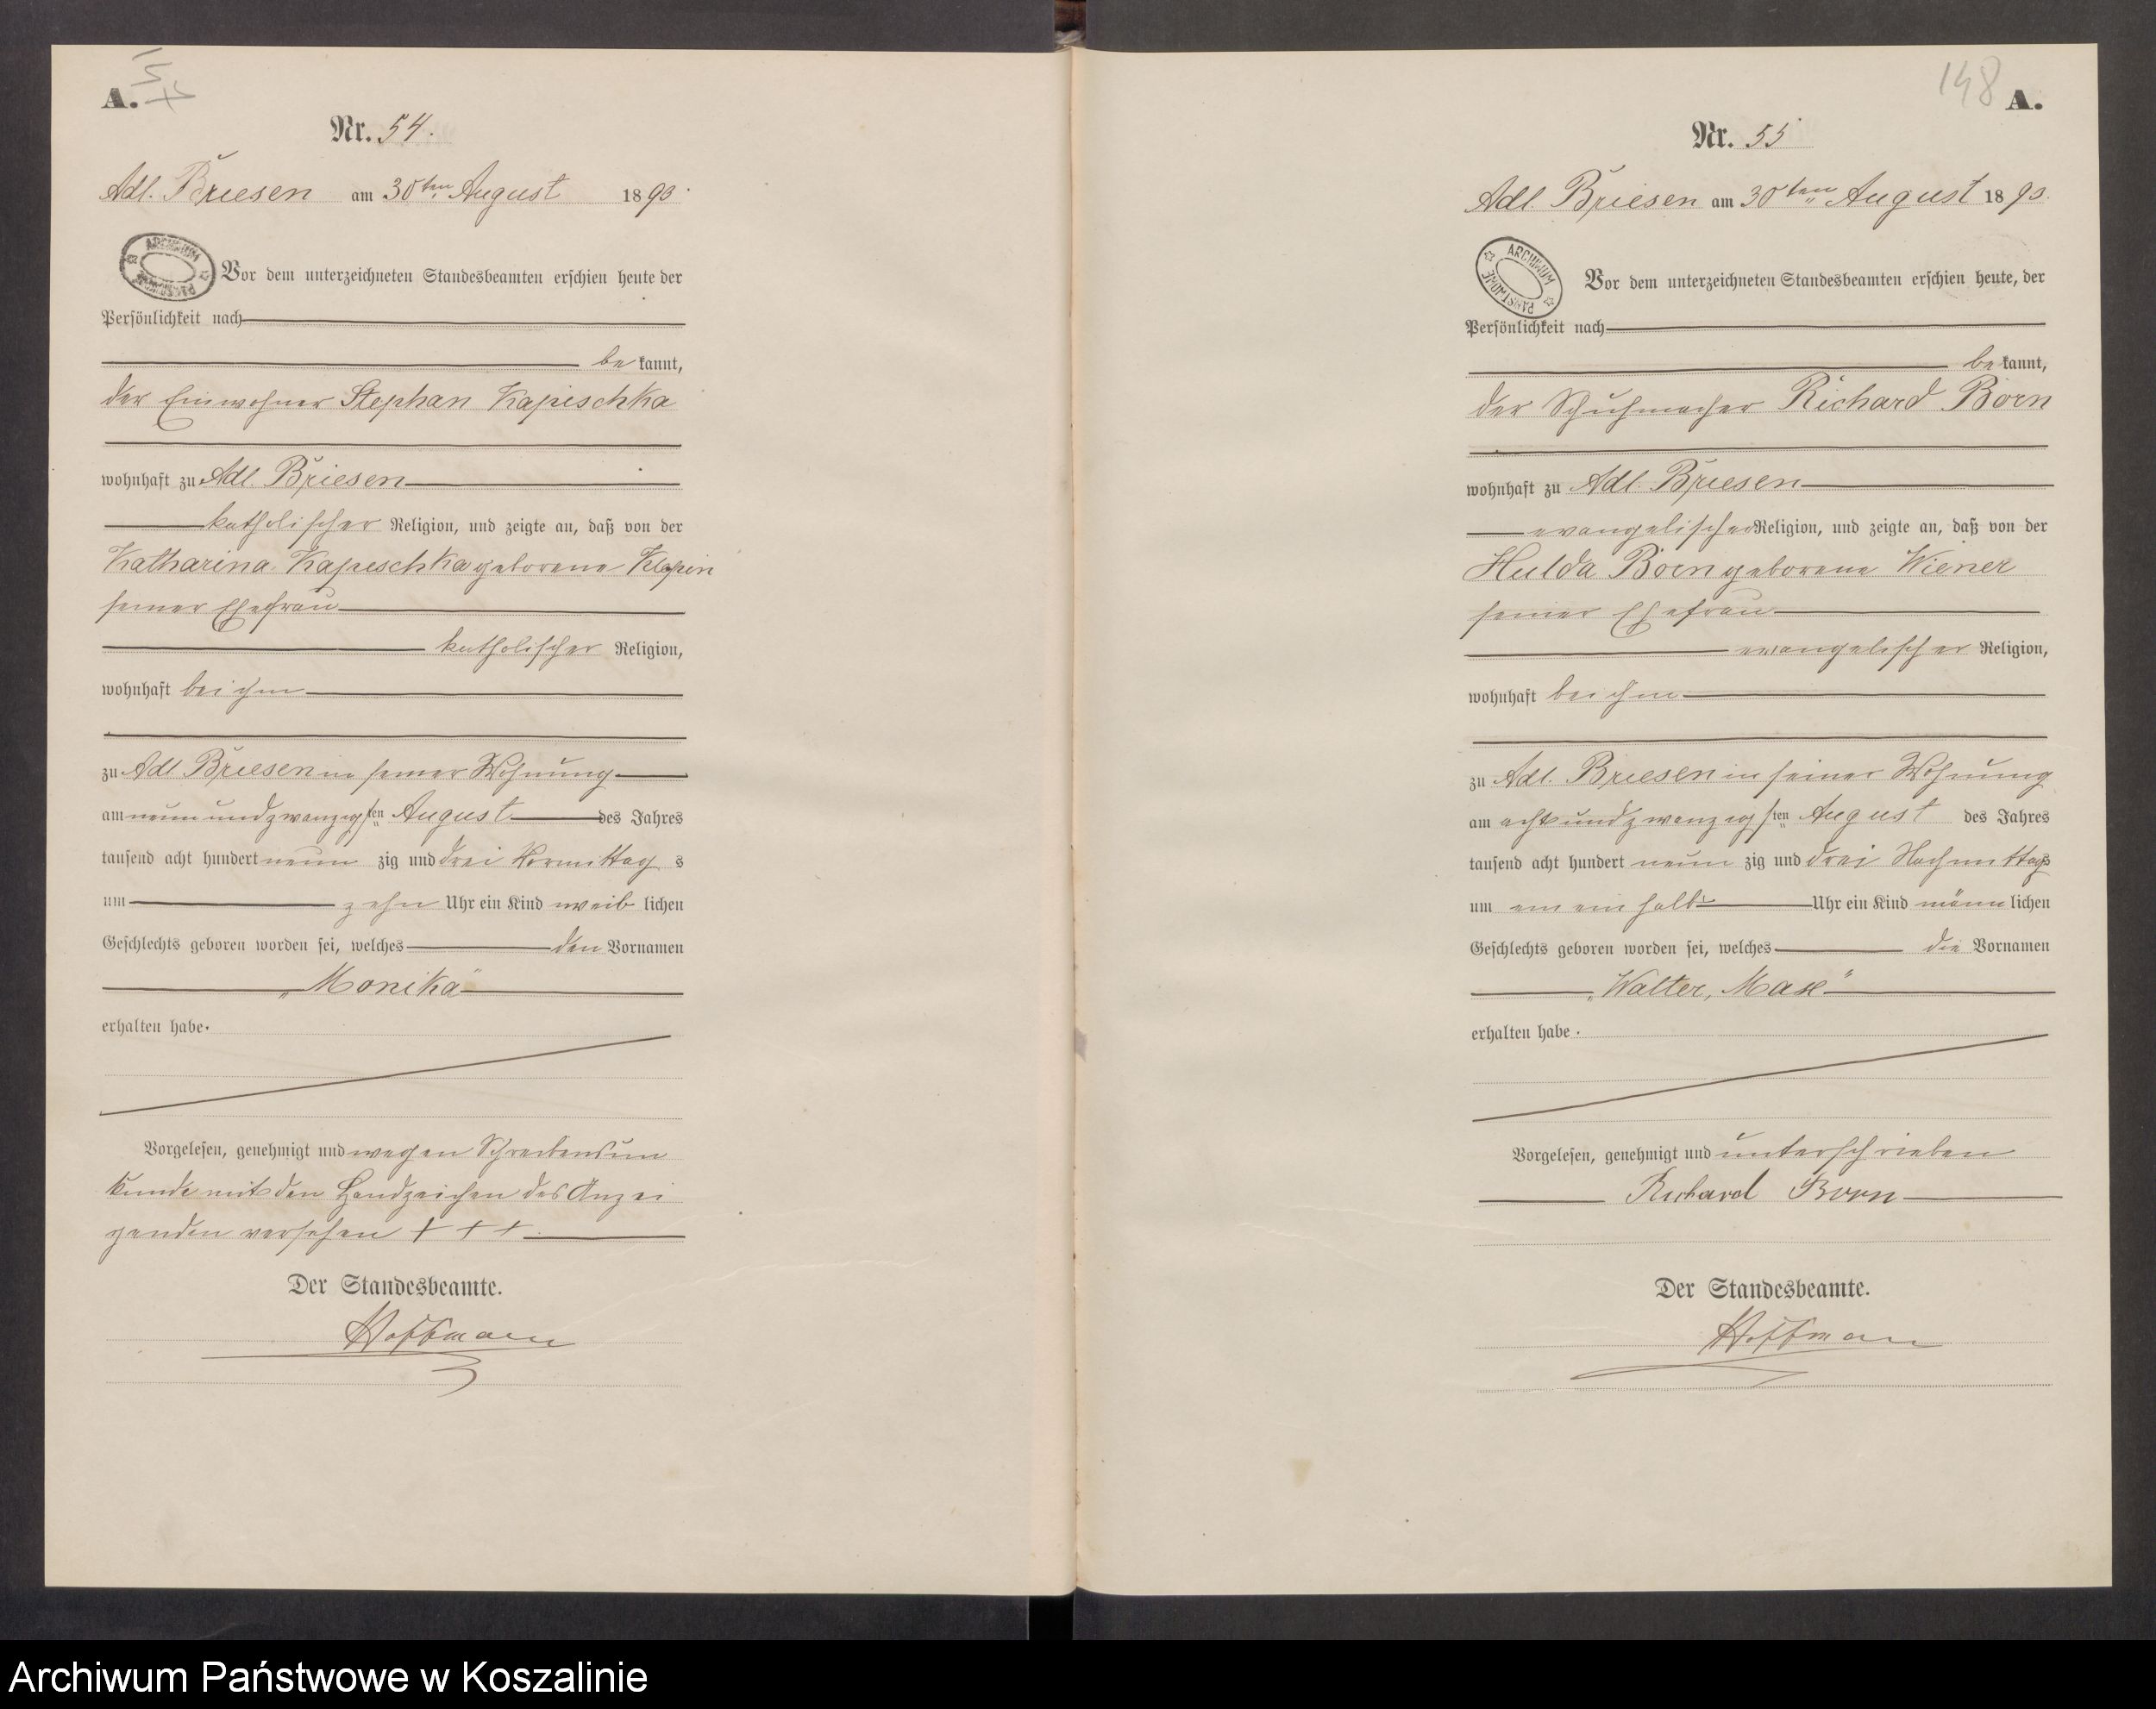 A.
Nr. 54.
Adl. Briesen am 30ten August 1893.
ARCHIWUM PAŃSTWOWE
Vor dem unterzeichneten Standesbeamten erschien heute der
Persönlichkeit nach
be kannt,
der Einwohner Stephan Kapischka
wohnhaft zu Adl. Briesen
katholischer Religion, und zeigte an, daß von der
Katharina Kapischka geborene
seiner Ehefrau
katholischer Religion,
wohnhaft bei ihm
zu Adl Briesen in seiner Wohnung
am neun und zwanzigsten August des Jahres
tausend acht hundert neun zig und drei Vormittag s
um zehn Uhr ein Kind weib lichen
Geschlechts geboren worden sei, welches den Vornamen
„Monika"
erhalten habe.
Vorgelesen, genehmigt und wegen Schreibensun
kunde mit den Handzeichen des Anzei
genden versehen + + +
Der Standesbeamte.
Hoffmann
148 A.
Nr. 55
Adl. Briesen am 30ten August 1893.
ARCHIWUM PAŃSTWOWE
Vor dem unterzeichneten Standesbeamten erschien heute, der
Persönlichkeit nach
be kannt,
der Schuhmacher Richard Born
wohnhaft zu Adl. Briesen
evangelischer Religion, und zeigte an, daß von der
Hulda Born geborene Wiener
seiner Ehefrau
evangelischer Religion,
wohnhaft bei ihm
zu Adl. Briesen in seiner Wohnung
am acht und zwanzigsten August des Jahres
tausend acht hundert neun zig und drei Nachmittags
um ein halb Uhr ein Kind männ lichen
Geschlechts geboren worden sei, welches die Vornamen
„Walter, Max"
erhalten habe.
Vorgelesen, genehmigt und unterschrieben
Richard Born
Der Standesbeamte.
Hoffmann
Archiwum Państwowe w Koszalinie